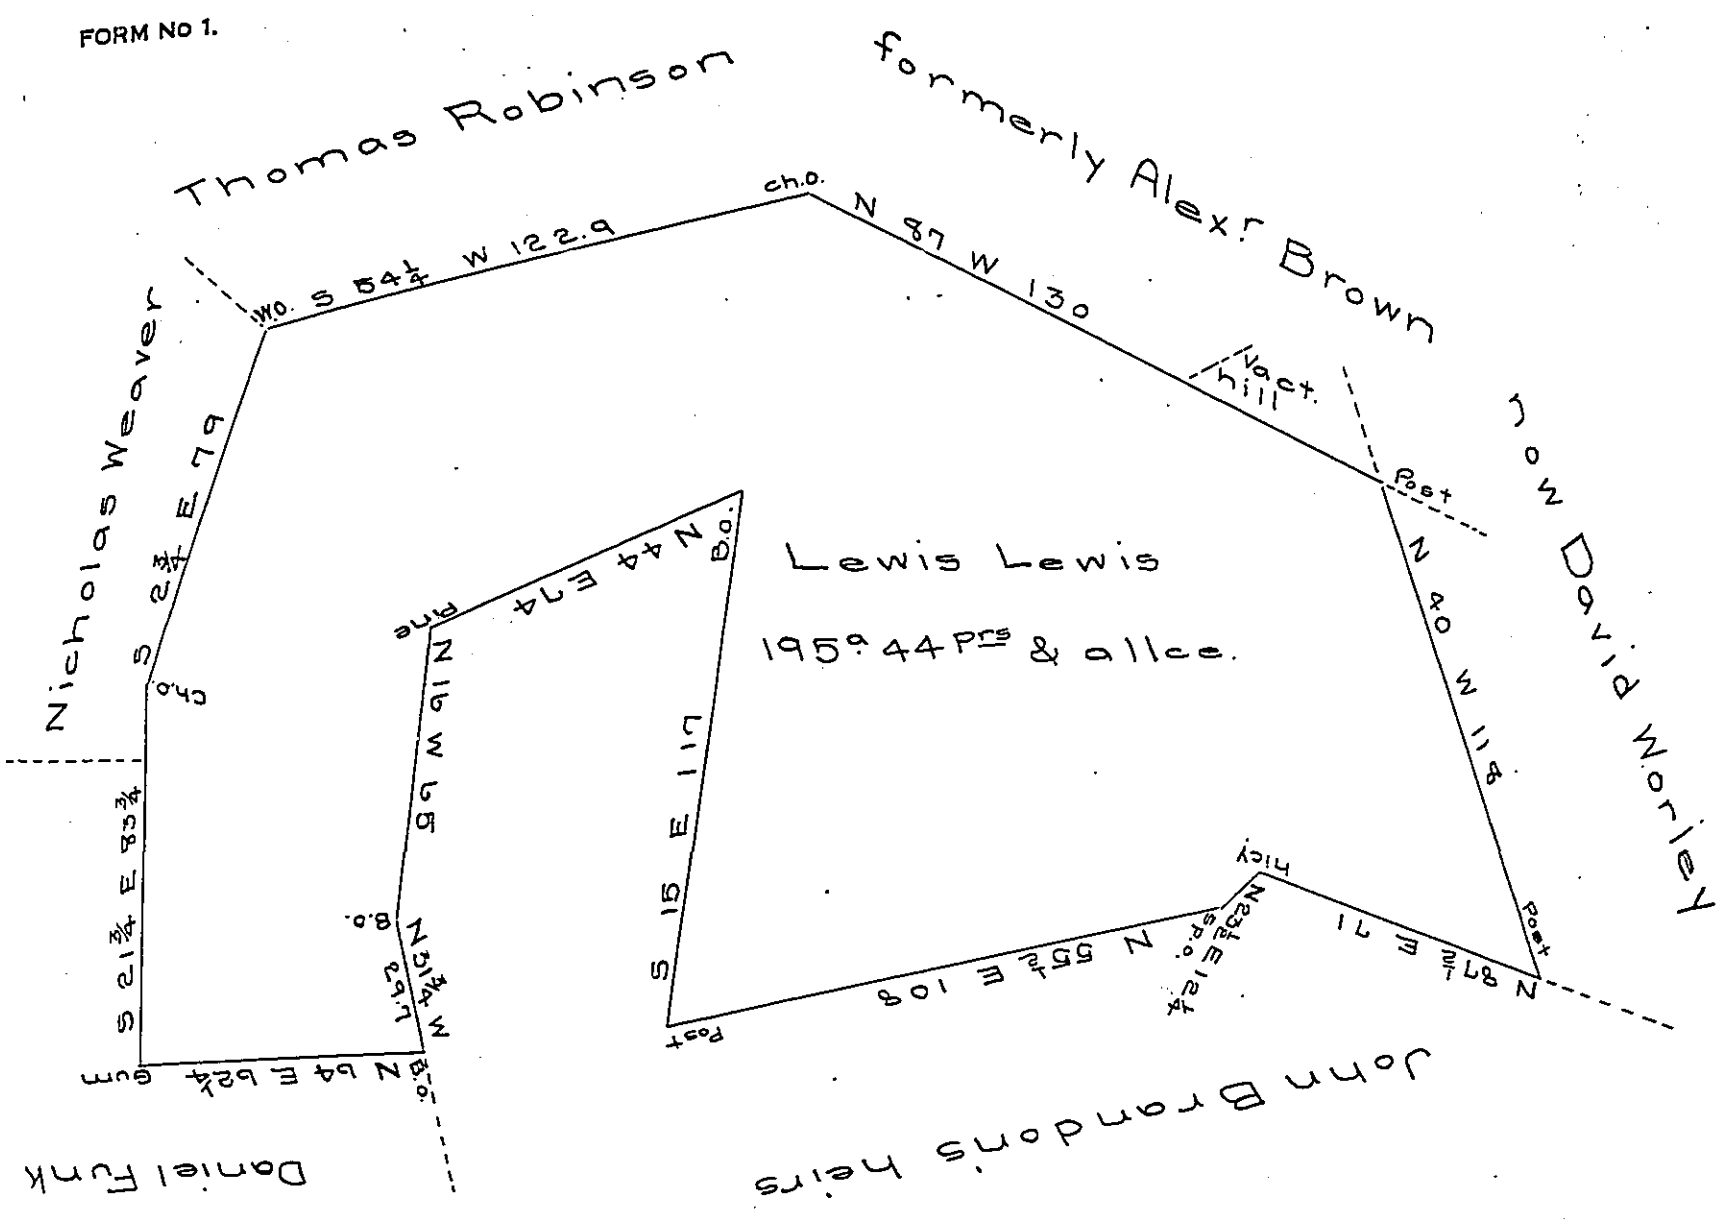 FORM No 1.
Thomas Robinson
formerly Alexr Brown
now David Worley
Nicholas Weaver
Ch.o.
N 87 W 130
S 54 1/4 W 122.9
W.O.
Vact.
hill
Post
N 40 W 118
Post
S 2 3/4 E 79
Ch.O.
S 21 3/4 E 83 3/4
Gum
N 64 E 62 1/4
B.O.
N 31 3/4 W
29.7
B.O.
N 16 W 65
Pine
N 44 E 74
B.O.
S 15 E 117
Post
N 55 1/2 E 108
SP.O.
N 23 1/2 E 12 4
hicy
N 87 1/2 E 71
Lewis Lewis
195a 44 Prs & allce.
John Brandon's heirs
Daniel Funk